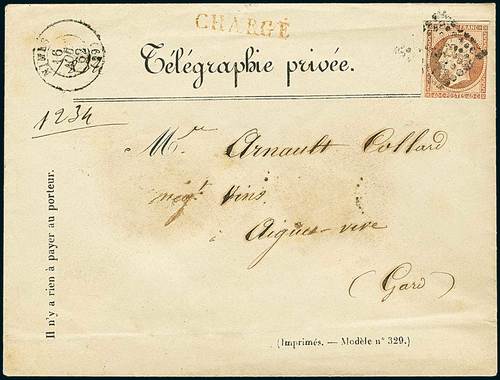 CHARGÉ
NIMES (29)
16
62
Télégraphie privée.
1234
Mr Arnault Collard
négt Vins
à Aigues-vive
(Gard)
Il n'y a rien à payer au porteur.
(Imprimés. — Modèle n° 329.)